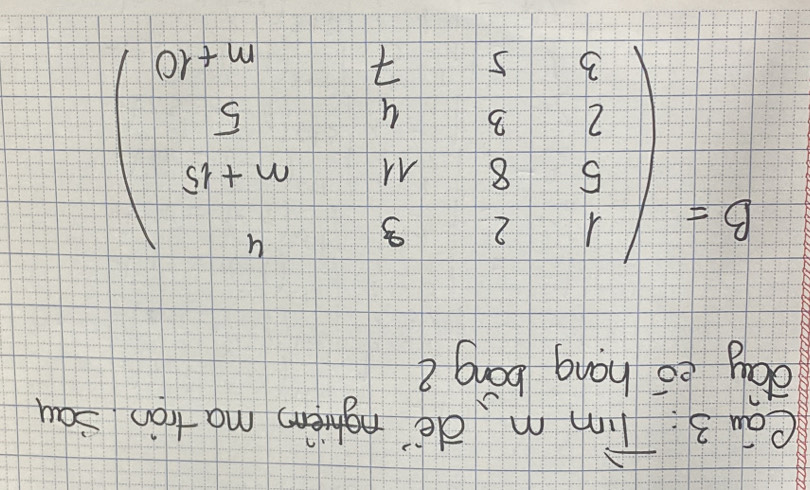 Câu 3: Tìm m để nghiệm ma trận sau
đây có hạng bằng 2
B =
1 2 3 4
5 8 11 m + 15
2 3 4 5
3 5 7 m + 10